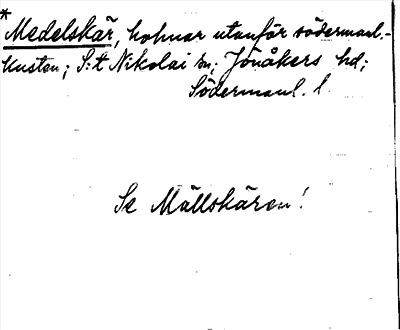 *
Medelskär, holmar utanför södermanl.-
kusten; S:t Nikolai sn; Jönåkers hd;
Södermanl. l.
Se Mällskären!